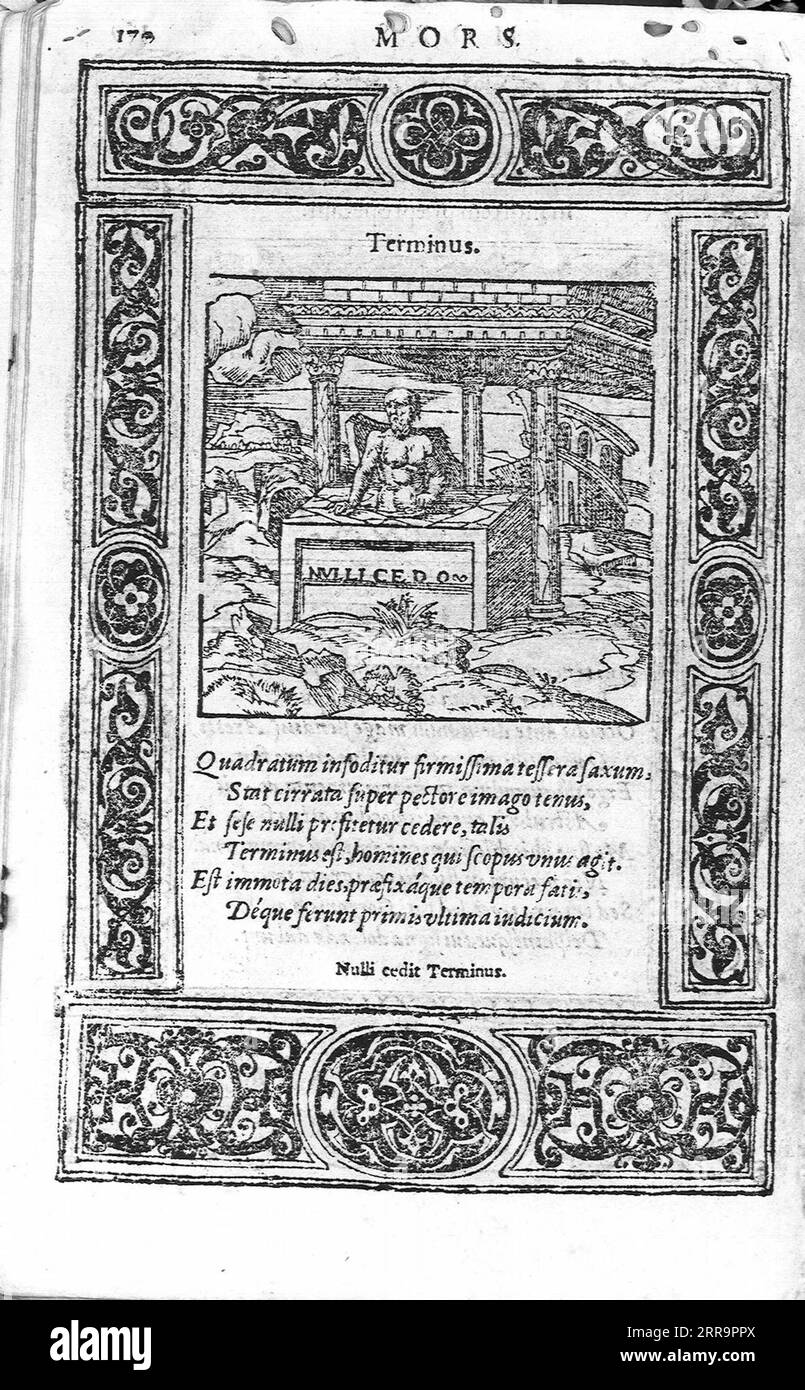 170 MORS.
Terminus.
NVLLI CEDO
Quadratum infoditur firmißima tessera saxum,
Stat cirrata super pectore imago tenus,
Et sese nulli profitetur cedere, talis
Terminus est, homines qui scopus vnus agit.
Est immota dies, præfixáque tempora fatis,
Déque ferunt primis vltima iudicium.
Nulli cedit Terminus.
alamy
Image ID: 2RR9PPX
www.alamy.com